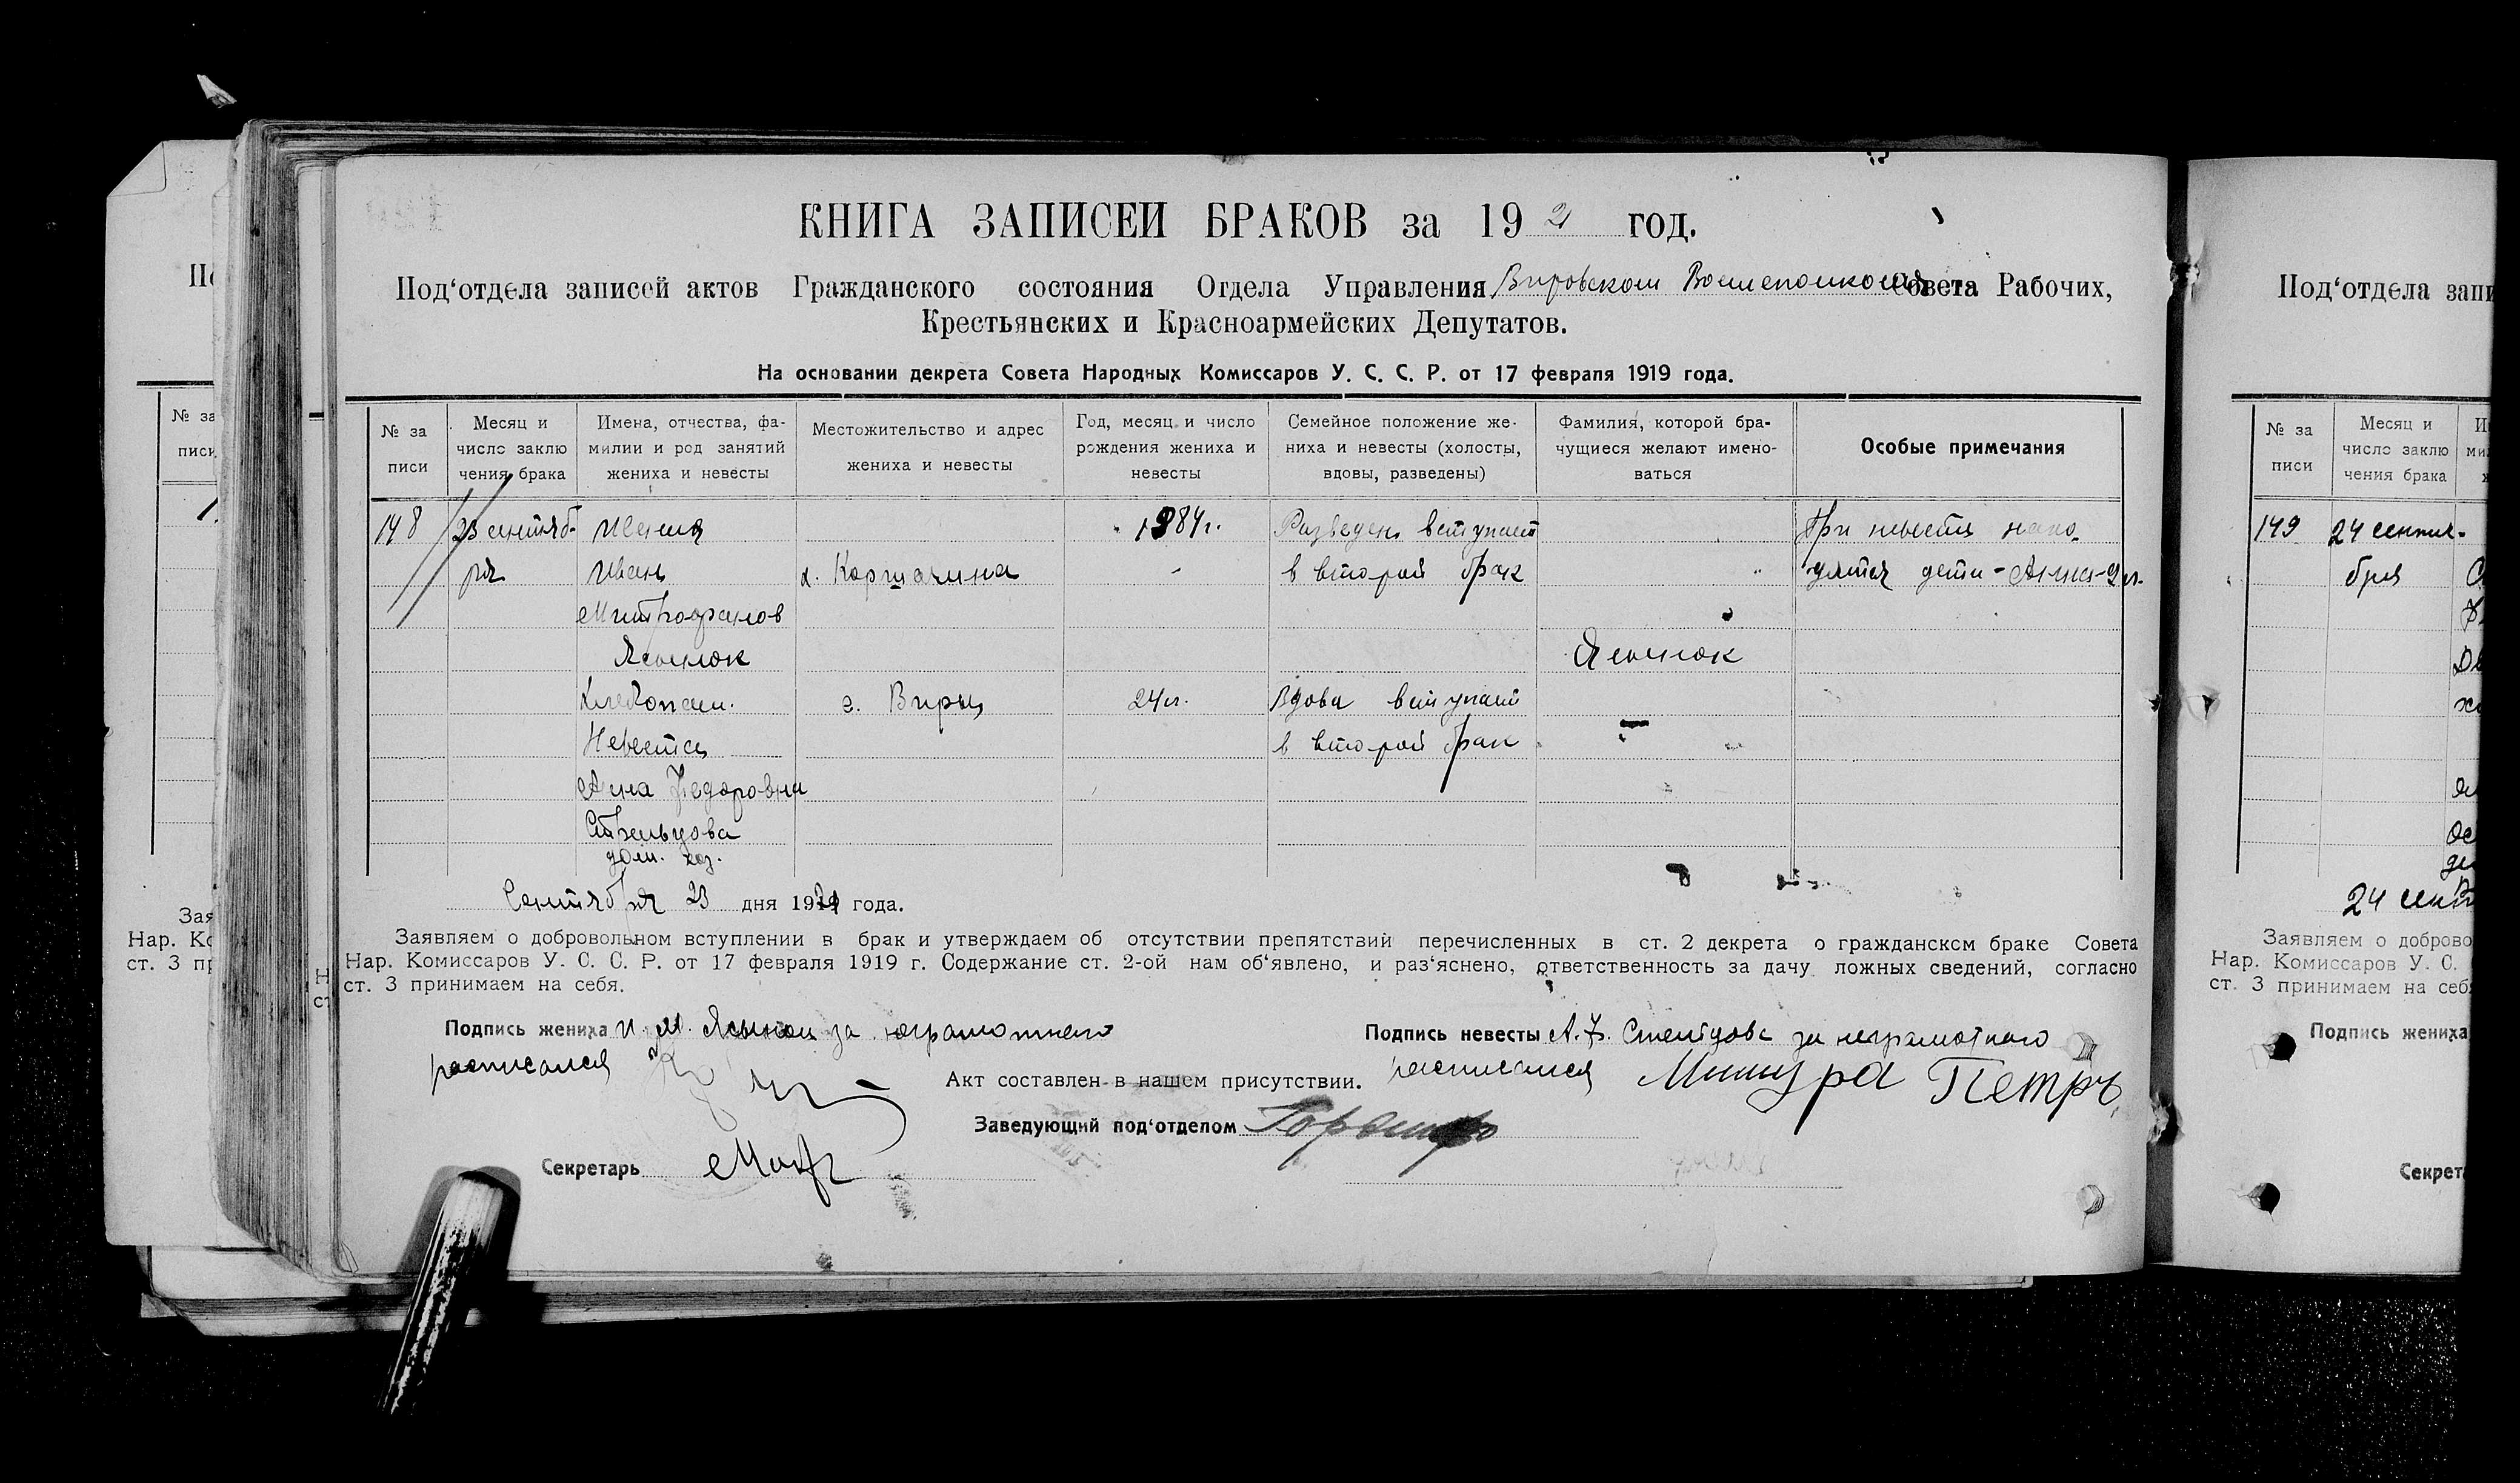 КНИГА ЗАПИСЕЙ БРАКОВ за 192 год.
Под‘отдела записей актов Гражданского состояния Отдела Управления Вировском Совета Рабочих,
Крестьянских и Красноармейских Депутатов.
На основании декрета Совета Народных Комиссаров У. С. С. Р. от 17 февраля 1919 года.
№ за писи
Месяц и число заклю чения брака
Имена, отчества, фа- милии и род занятий жениха и невесты
Местожительство и адрес жениха и невесты
Год, месяц и число рождения жениха и невесты
Семейное положение же- ниха и невесты (холосты, вдовы, разведены)
Фамилия, которой бра- чущиеся желают имено- ваться
Особые примечания
148 23 сентяб- Жених 1884г. Разведен вступает При невесте нахо-
ря Иван х. в второй брак дятся дети - Анна - 2 л.
Митрофанов
Ясынок Ясынок
Хлебопаш. с. Виры 24 л. Вдова вступает
Невеста в второй брак
Анна Федоровна
Стрельцова
дом. хоз.
Сентября 23 дня 1921 года.
Заявляем о добровольном вступлении в брак и утверждаем об отсутствии препятствий перечисленных в ст. 2 декрета о гражданском браке Совета
Нар. Комиссаров У. С. С. Р. от 17 февраля 1919 г. Содержание ст. 2-ой нам об‘явлено, и раз‘яснено, ответственность за дачу ложных сведений, согласно
ст. 3 принимаем на себя.
Подпись жениха И. М. Ясынок за неграмотного
расписался
Подпись невесты А. Ф. за неграмотного
расписался Петръ
Акт составлен в нашем присутствии.
Заведующий под‘отделом
Секретарь
Под‘отдела запи
№ за писи
Месяц и число заклю чения брака
149 24 сентя-
бря
24
Заявляем о доброво
Нар. Комиссаров У. С.
ст. 3 принимаем на себя
Подпись жениха
Секрет
№ за
писи
Зая
Нар. Ко
ст. 3 пр